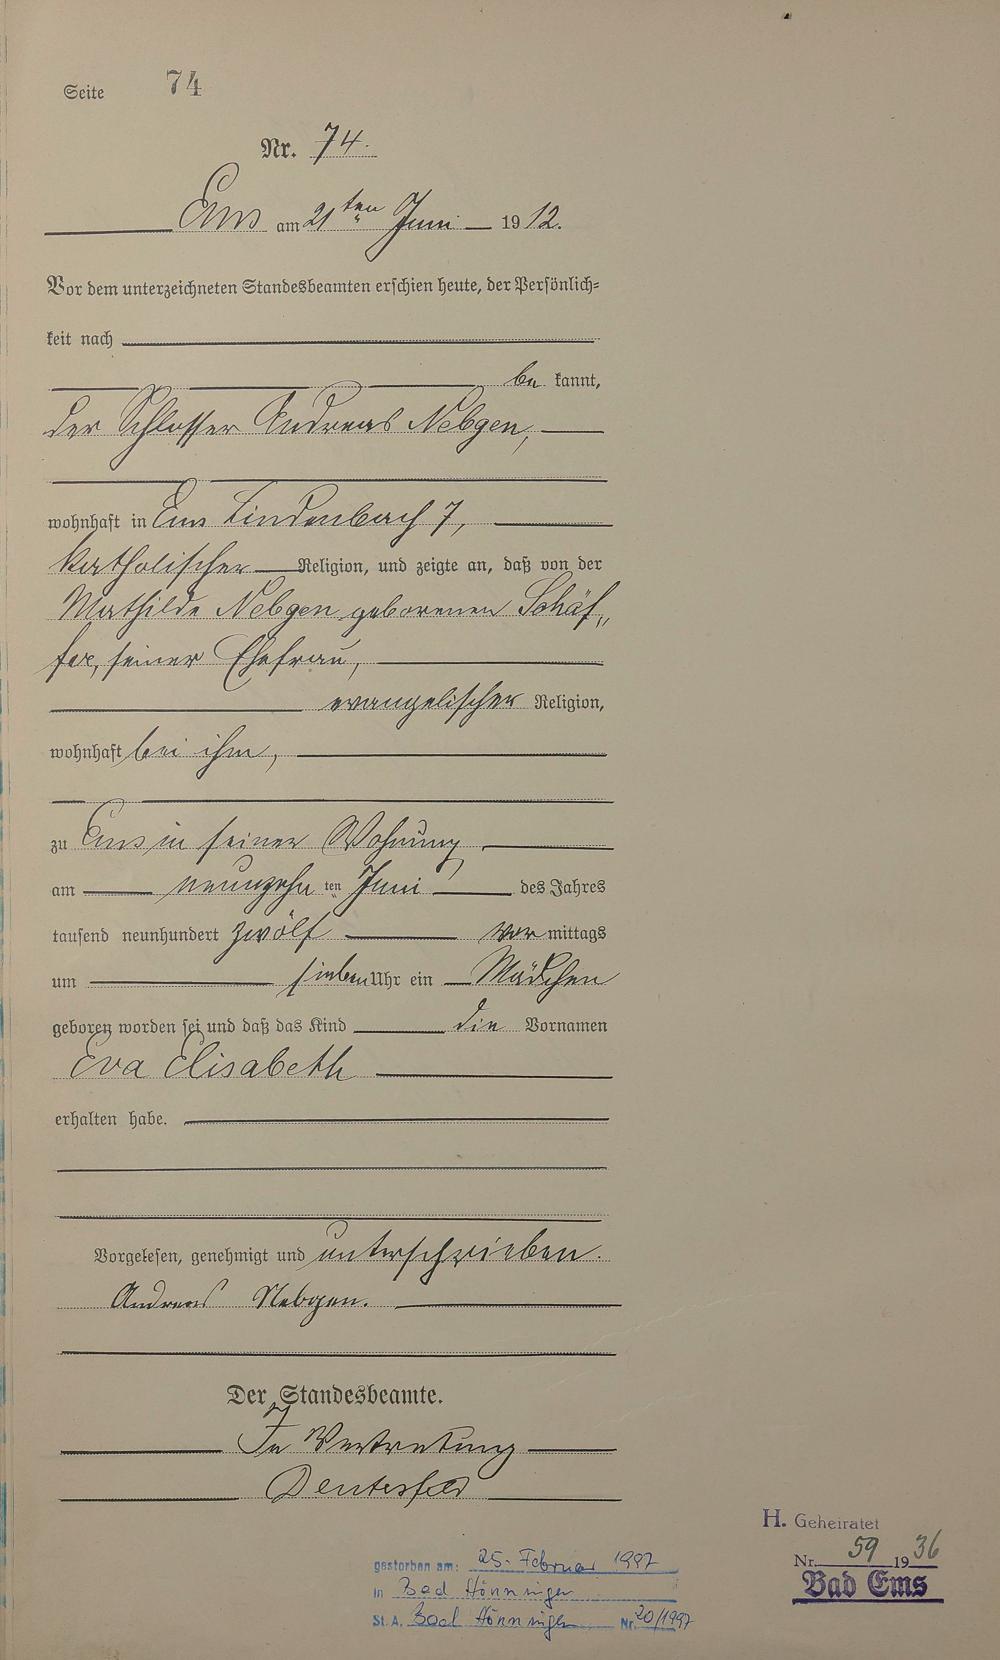 Seite 74
Nr. 74.
Ems am 21ten Juni 1912.
Vor dem unterzeichneten Standesbeamten erschien heute, der Persönlich=
keit nach
bekannt,
der Schlosser Andreas Nebgen,
wohnhaft in Ems Lindenbach 7,
katholischer Religion, und zeigte an, daß von der
Mathilde Nebgen geborenen Schäf„
fer, seiner Ehefrau,
evangelischer Religion,
wohnhaft bei ihm,
zu Ems in seiner Wohnung
am neunzehnten Juni des Jahres
tausend neunhundert zwölf vormittags
um sieben Uhr ein Mädchen
geboren worden sei und daß das Kind die Vornamen
Eva Elisabeth
erhalten habe.
Vorgelesen, genehmigt und unterschrieben.
Andreas Nebgen.
Der Standesbeamte.
In Vertretung
H. Geheiratet
Nr. 59 1936
Bad Ems
gestorben am: 25. Februar 1997
in Bad Hönningen
St.A. Bad Hönningen Nr. 20/1997